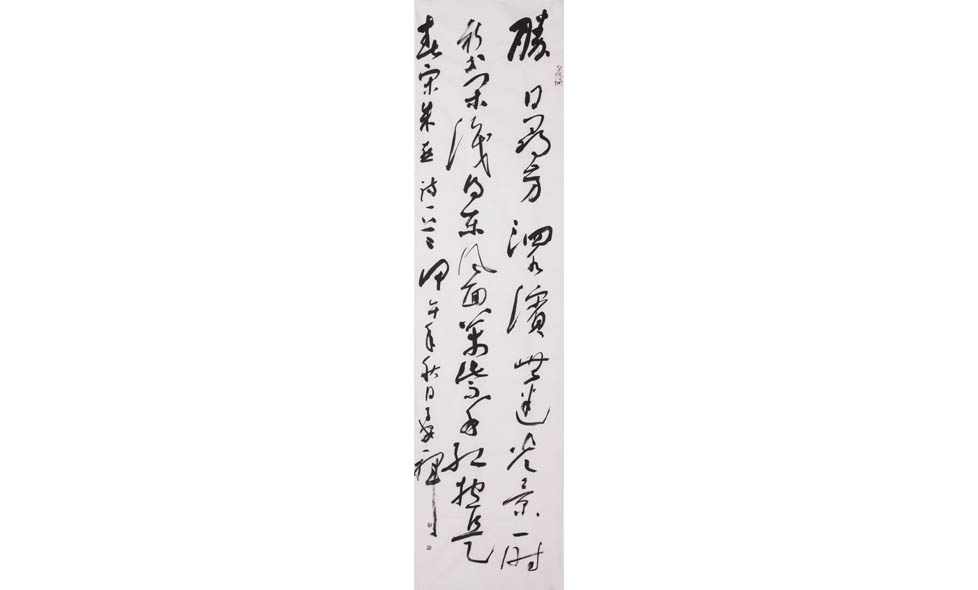 勝日尋芳泗水濱無邊光景一時
新等闲識得東风面萬紫千红總是
春宋朱熹诗一首甲午年秋日